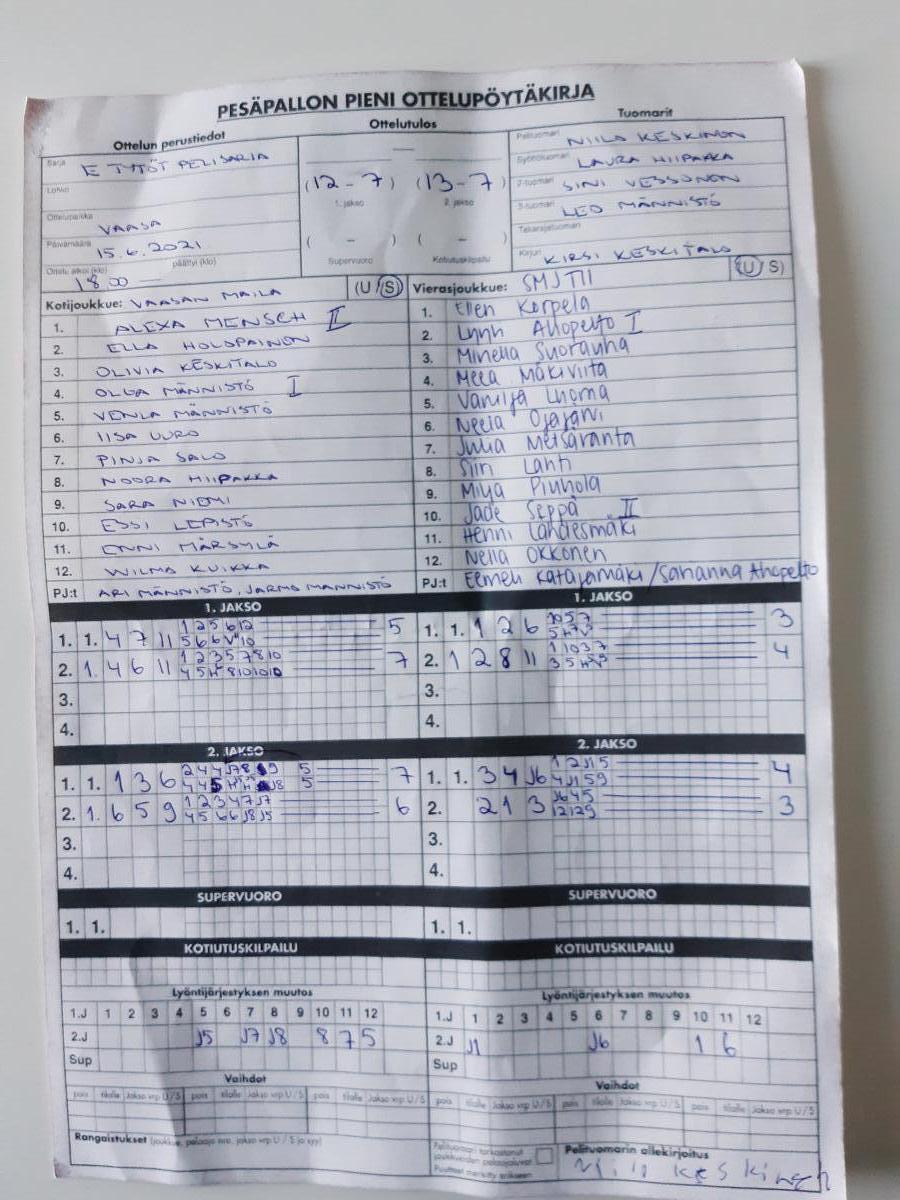 PESÄPALLON PIENI OTTELUPÖYTÄKIRJA
Ottelun perustiedot
Ottelutulos
Tuomarit
Sarja E TYTÖT PELISARJA
Lohko
Ottelupaikka VAASA
Päivämäärä 15.6.2021
Ottelu alkoi (klo) 18.00 päättyi (klo)
(12 - 7) (13 - 7)
1. jakso 2. jakso
( - ) ( - )
Supervuoro Kotiutuskilpailu
Pelituomari NIILA KESKINEN
Syöttötuomari LAURA HIIPAKKA
2-tuomari SINI VESSONEN
3-tuomari LEO MÄNNISTÖ
Takarajatuomari
Kirjuri KIRSI KESKITALO
Kotijoukkue: VAASAN MAILA (U / S)
1. ALEXA MENSCH II
2. ELLA HOLOPAINEN
3. OLIVIA KESKITALO
4. OLGA MÄNNISTÖ I
5. VENLA MÄNNISTÖ
6. IISA UURO
7. PINJA SALO
8. NOORA HIIPAKKA
9. SARA NIEMI
10. ESSI LEPISTÖ
11. ENNI MÄRSYLÄ
12. WILMA KUIKKA
PJ:t ARI MÄNNISTÖ, JARMO MÄNNISTÖ
Vierasjoukkue: SMJ TII (U / S)
1. Ellen Korpela
2. Lynn Ahopelto I
3. Minella Suorauha
4. Meea Mäkiviita
5. Vanilja Luoma
6. Neela Ojajärvi
7. Julia Metsäranta
8. Siiri Lahti
9. Milja Pinhola
10. Jade Seppä II
11. Henni Lähdesmäki
12. Nella Okkonen
PJ:t Eemeli Katajamäki / Sahanna Ahopelto
1. JAKSO
1. 1. 4 7 11 1 2 5 6 12 5
5 6 6 V 10
2. 1. 4 6 11 1 2 3 5 7 8 10 7
4 5 H 8 10 10 10
3.
4.
1. JAKSO
1. 1. 1 2 6 10 5 7 3
2. 1 2 8 11 1 10 3 7 4
3.
4.
2. JAKSO
1. 1. 1 3 6 2 4 4 J7 8 9 5 7
5
2. 1. 6 5 9 1 2 3 4 7 J7 6
4 5 6 6 J8 J5
3.
4.
2. JAKSO
1. 1. 3 4 J6 1 2 J1 5 4
4 J1 5 9
2. 2 1 3 J6 4 5 3
12 12 9
3.
4.
SUPERVUORO
1. 1.
SUPERVUORO
1. 1.
KOTIUTUSKILPAILU
KOTIUTUSKILPAILU
Lyöntijärjestyksen muutos
1.J 1 2 3 4 5 6 7 8 9 10 11 12
2.J J5 J7 J8 8 7 5
Sup
Lyöntijärjestyksen muutos
1.J 1 2 3 4 5 6 7 8 9 10 11 12
2.J J1 J6 1 6
Sup
Vaihdot
pois tilalle Jakso vrp U / S pois tilalle Jakso vrp U / S pois tilalle Jakso vrp U / S
Vaihdot
pois tilalle Jakso vrp U / S pois tilalle Jakso vrp U / S pois tilalle Jakso vrp U / S
Rangaistukset (joukkue, pelaaja nro, jakso vrp U / S ja syy)
Pelituomari tarkastanut
joukkueiden pelaajaluvat
Puutteet merkitty erikseen
Pelituomarin allekirjoitus
Niila Keskinen